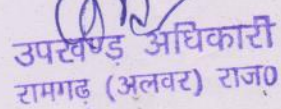 उपखण्ड़ अधिकारी
रामगढ़ (अलवर) राज0